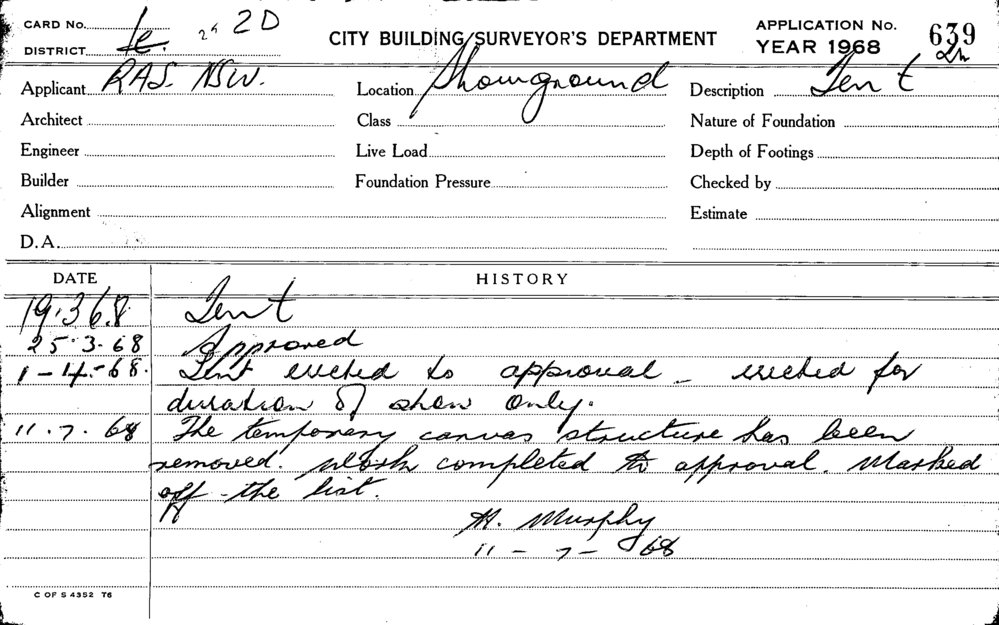 CARD No. 2D
CITY BUILDING SURVEYOR'S DEPARTMENT
APPLICATION No. 639
DISTRICT
YEAR 1968
Applicant RAS. NSW.
Location Showground
Description Tent
Architect
Class
Nature of Foundation
Engineer
Live Load
Depth of Footings
Builder
Foundation Pressure
Checked by
Alignment
Estimate
D.A.
DATE
HISTORY
19.3.68 Tent
25.3.68 Approved
1-4-68. Tent erected to approval - erected for
duration of show only.
11.7.68 The temporary canvas structure has been
removed. Work completed to approval. Marked
off the list.
H. Murphy
11-7-68
C OF S 4352 T6